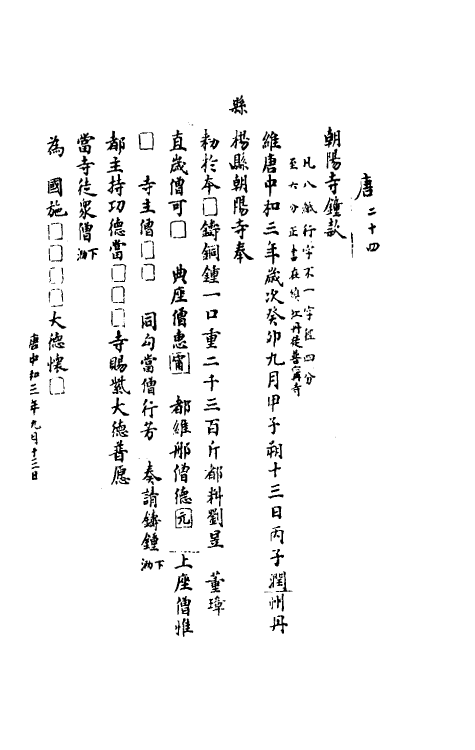 唐二十四
朝陽寺鐘款
凡八截行字不一字徑四分
至六分正書在鎮江丹徒善寧寺
維唐中和三年歲次癸卯九月甲子朔十三日丙子潤州丹
縣
楊縣朝陽寺奉
勑於本□鑄銅鍾一口重二千三百斤都料劉昱 董璋
直歲僧可□ 典座僧惠霄 都維那僧德元 上座僧惟
□ 寺主僧□□ 同勾當僧行芳 奏請鑄鍾下泐
都主持功德當□□□寺賜紫大德普愿
當寺徒眾僧下泐
為 國施□□□□大德懷□
唐中和三年九月十三日